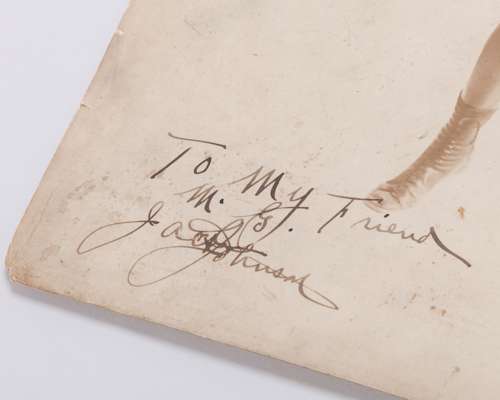 To My Friend
M. G.
Jack Johnson